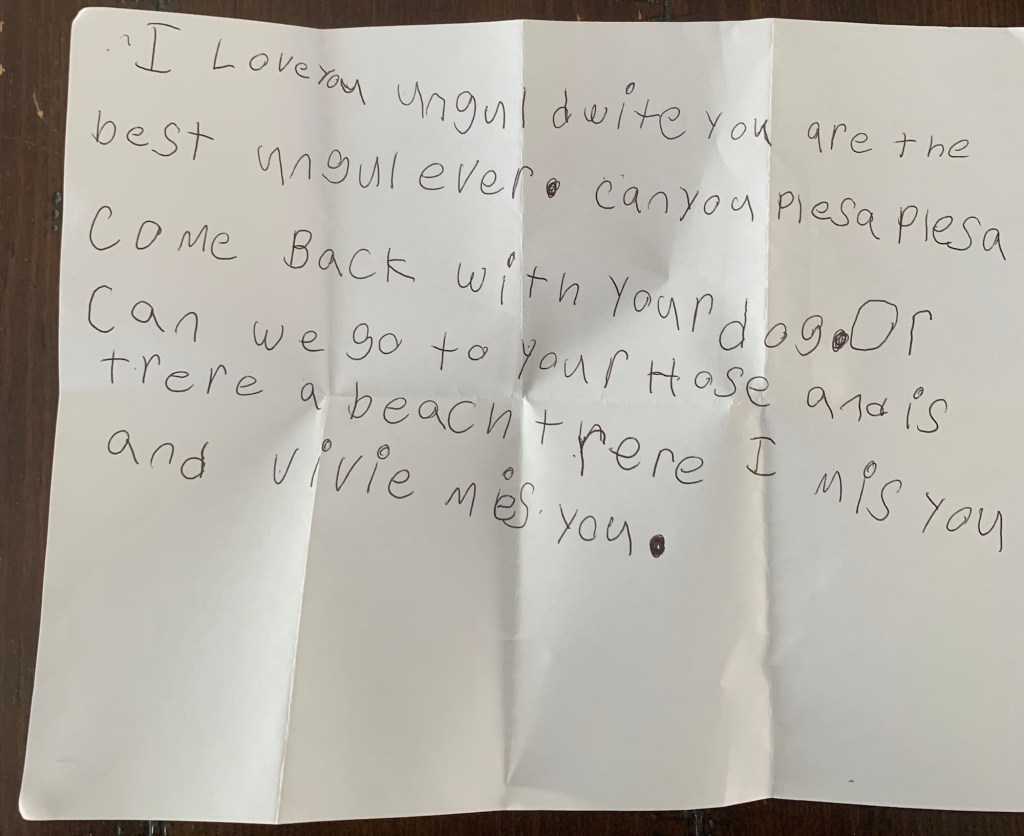 I Love you ungul dwite you are the
best ungul ever. can you plesa plesa
COMe BacK with your dog. Or
Can we go to your Hose and is
trere a beach trere I mis you
and vivie mis you.